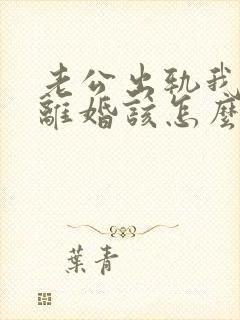 老公出軌我
離婚該怎麼
葉青